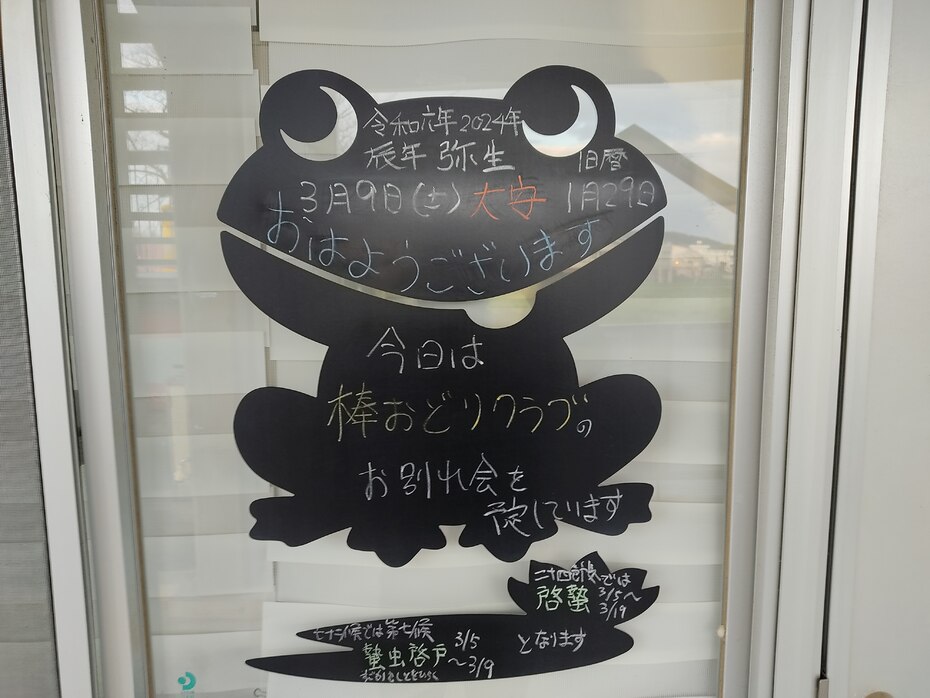 令和六年 2024年
辰年 弥生 旧暦
3月9日(土) 大安 1月29日
おはようございます
今日は
棒おどりクラブの
お別れ会を
予定しています
二十四節気では
啓蟄 3/5〜
3/19
七十二候では第七候
蟄虫啓戸 3/5
〜3/9
となります